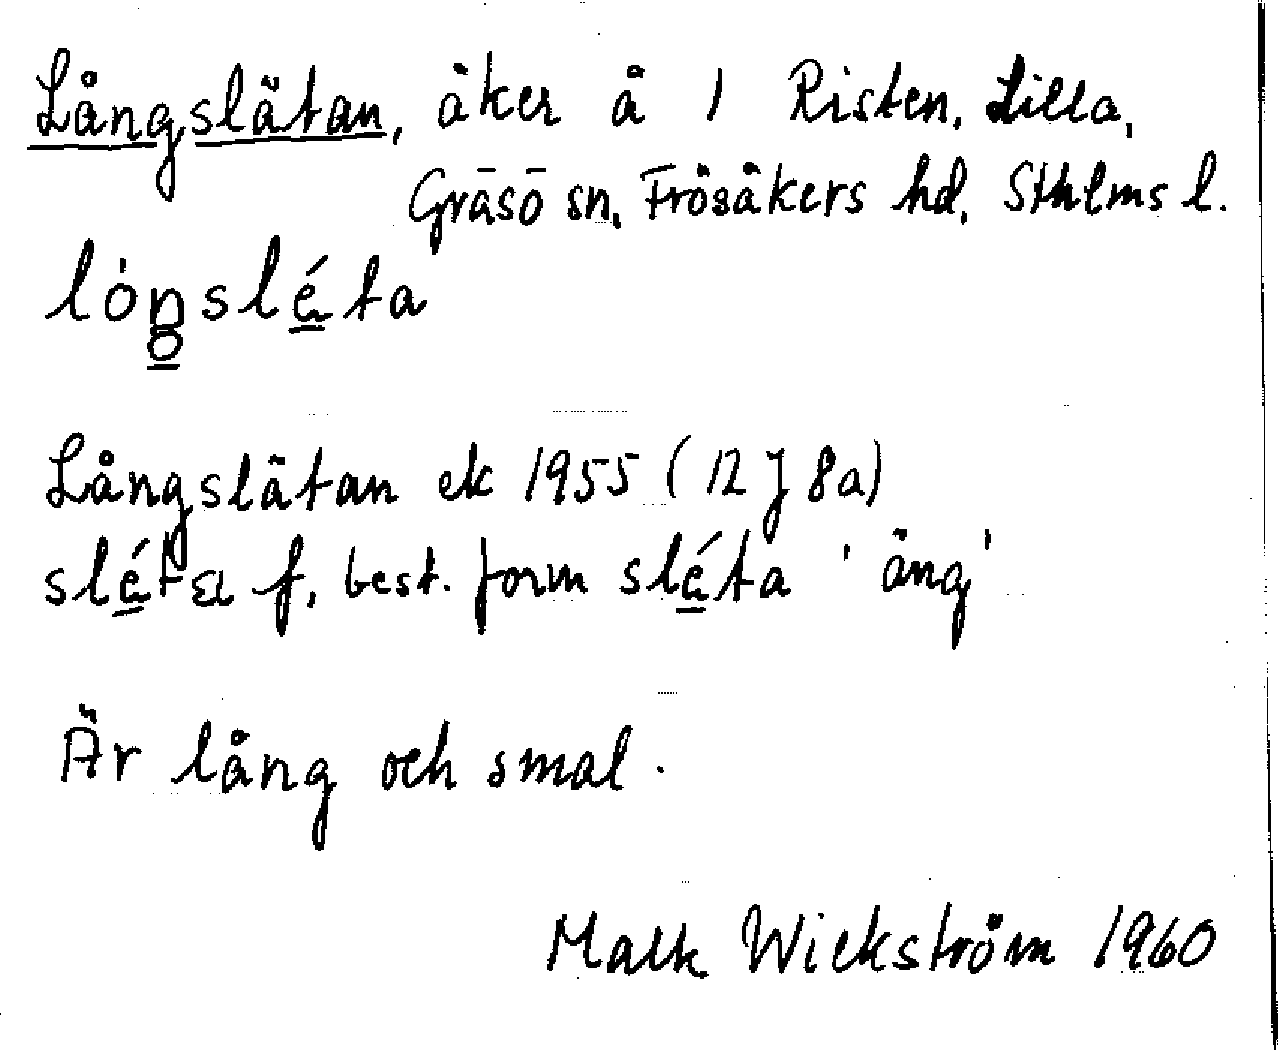 Långslätan, åker å 1 Risten, Lilla,
Gräsö sn, Frösåkers hd, Sthlms l.
lóŋsléta
Långslätan ek 1955 (12 J 8a)
slétɛ f, best. form sléta 'äng'
Är lång och smal.
Wickström 1960